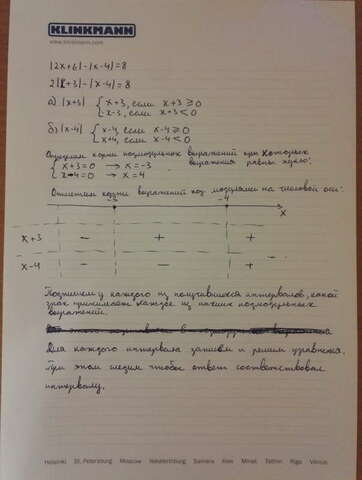 KLINKMANN
www.klinkmann.com
|2x+6|-|x-4|=8
2|x+3|-|x-4|=8
а) |x+3| { x+3, если x+3≥0
x-3, если x+3<0
б) |x-4| { x-4, если x-4≥0
x+4, если x-4<0
Определим корни подмодульных выражений при которых
выражения равны нулю:
{ x+3=0 → x=-3
x-4=0 → x=4
Отметим корни выражений под модулями на числовой оси:
-3 4
x
x+3 - + +
x-4 - - +
Подпишем у каждого из получившихся интервалов, какой
знак принимает каждое из наших подмодульных
выражений.
Для каждого интервала запишем и решим уравнения.
При этом следим чтобы ответ соответствовал
интервалу.
Helsinki St. Petersburg Moscow Yekaterinburg Samara Kiev Minsk Tallinn Riga Vilnius